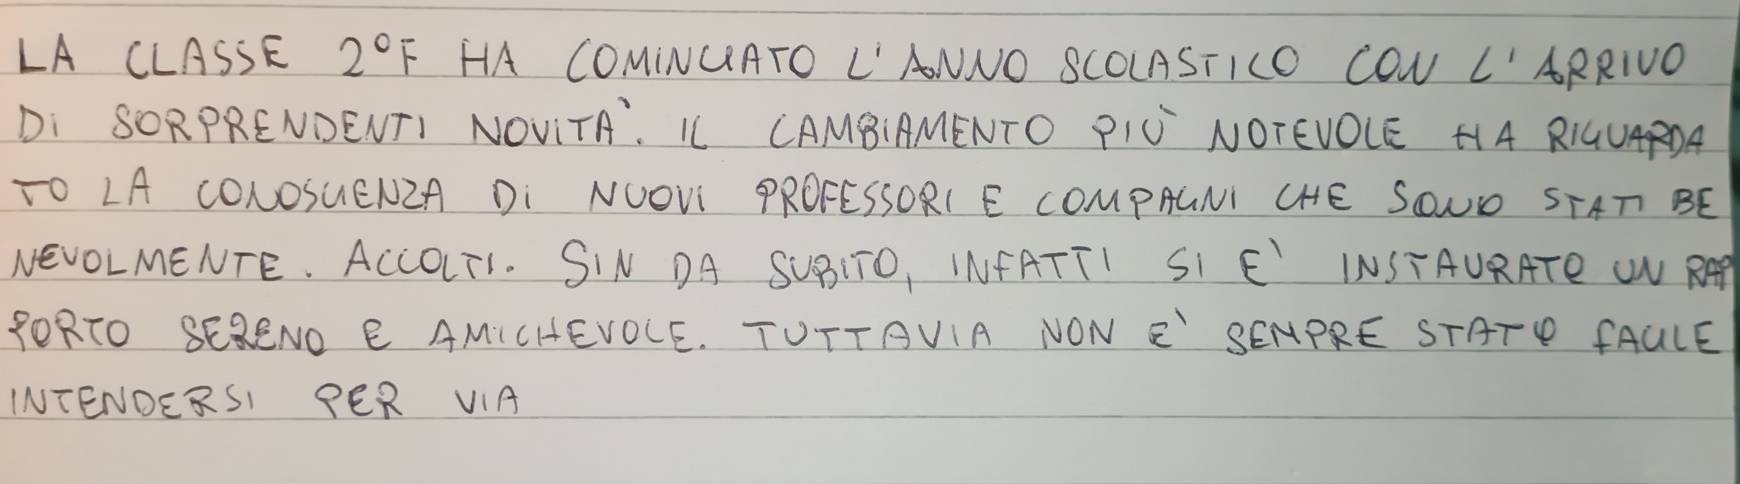 LA CLASSE 2°F HA COMINCIATO L'ANNO SCOLASTICO CON L'ARRIVO
DI SORPRENDENTI NOVITA'. IL CAMBIAMENTO PIÙ NOTEVOLE HA RIGUARDA
TO LA CONOSCENZA DI NUOVI PROFESSORI E COMPAGNI CHE SONO STATI BE
NEVOLMENTE. ACCOLTI. SIN DA SUBITO, INFATTI SI E' INSTAURATO UN RAP
PORTO SERENO E AMICHEVOLE. TUTTAVIA NON E' SEMPRE STATO FACILE
INTENDERSI PER VIA